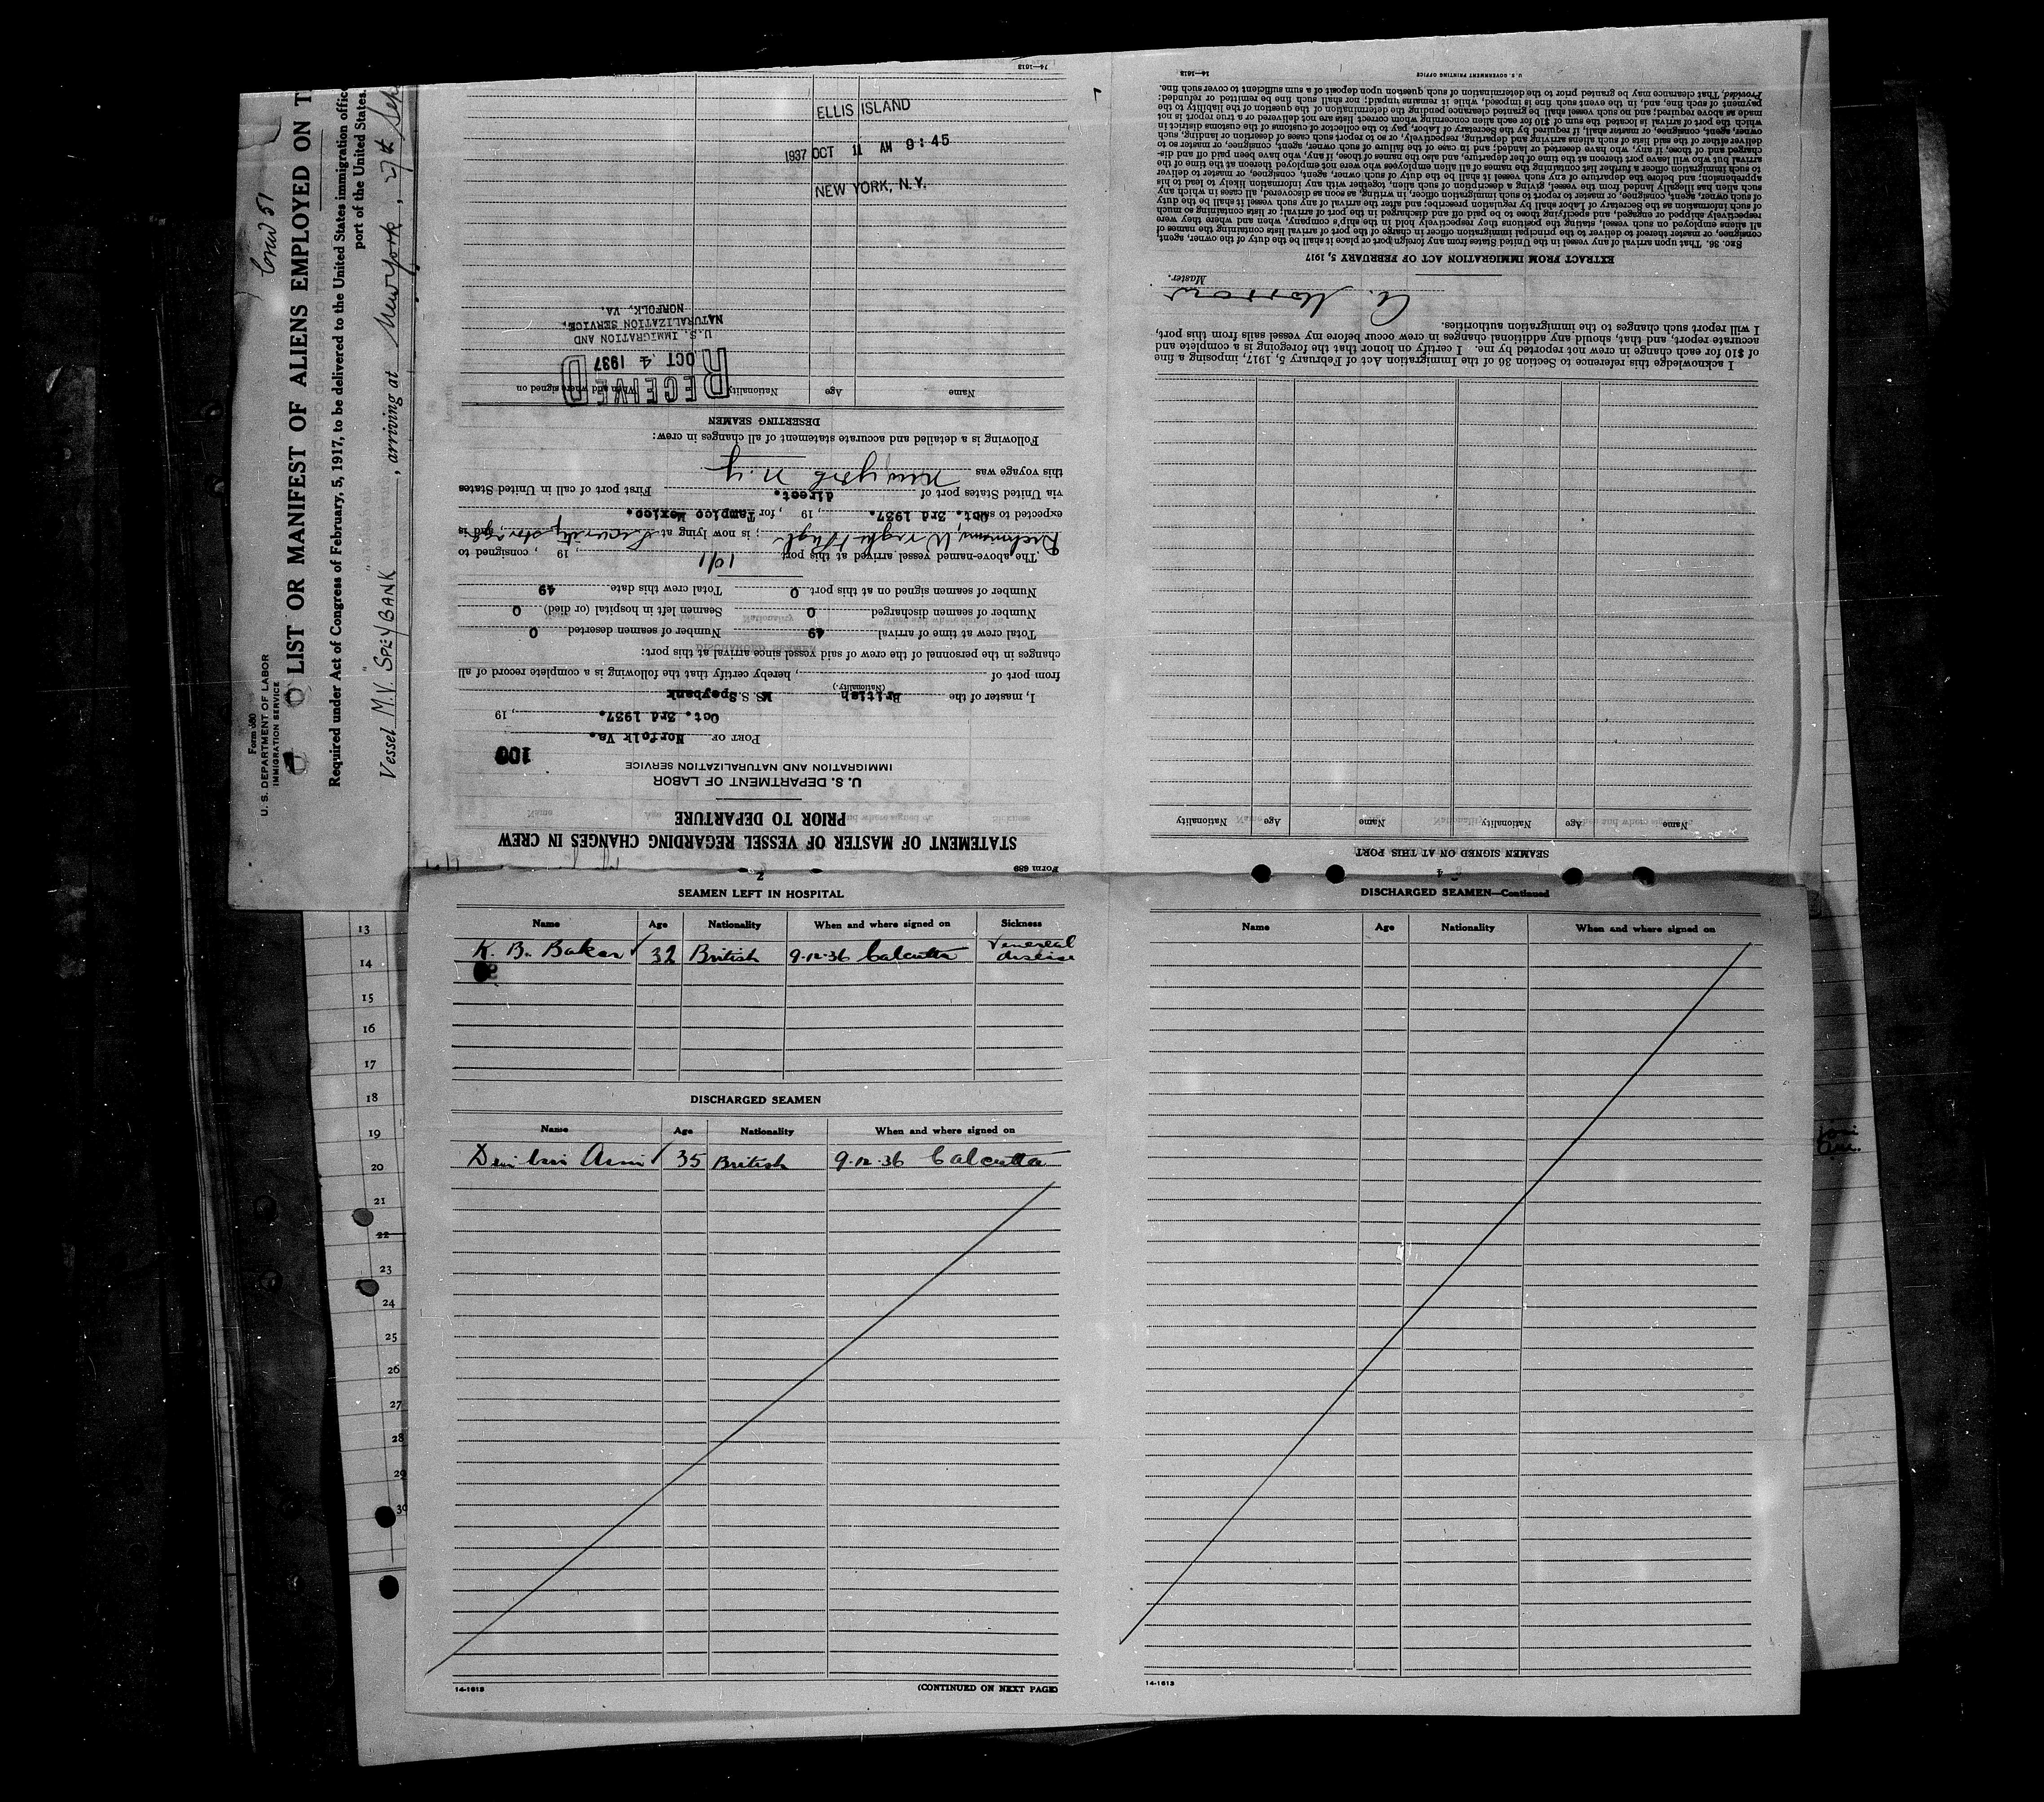 Form 680
U. S. DEPARTMENT OF LABOR
IMMIGRATION SERVICE
Crew 51
LIST OR MANIFEST OF ALIENS EMPLOYED ON T
Required under Act of Congress of February, 5, 1917, to be delivered to the United States immigration offic
port of the United States.
Vessel M.V. "SPEYBANK", arriving at New York, 27th Sep
Form 689
STATEMENT OF MASTER OF VESSEL REGARDING CHANGES IN CREW
PRIOR TO DEPARTURE
U. S. DEPARTMENT OF LABOR
IMMIGRATION AND NATURALIZATION SERVICE
100
PORT OF Norfolk Va.
Oct. 3rd 1937. , 19
I, master of the British MS. S. Speybank
(Nationality.)
from port of , hereby certify that the following is a complete record of all
changes in the personnel of the crew of said vessel since arrival at this port:
Total crew at time of arrival 49 Number of seamen deserted 0
Number of seamen discharged 0 Seamen left in hospital (or died) 0
Number of seamen signed on at this port 0 Total crew this date 49
The above-named vessel arrived at this port 10/1 , 19 , consigned to
; is now lying at Security storage, and is
expected to sail Oct. 3rd 1937. , 19 , for Tampico Mexico.
via United States port of direct. First port of call in United States
this voyage was New York N.Y
Following is a detailed and accurate statement of all changes in crew:
DESERTING SEAMEN
Name Age Nationality When and where signed on
RECEIVED
OCT 4 1937
U. S. IMMIGRATION AND
NATURALIZATION SERVICE,
NORFOLK, VA.
ELLIS ISLAND
1937 OCT 11 AM 9:45
NEW YORK, N.Y.
14—1613
2
SEAMEN LEFT IN HOSPITAL
Name Age Nationality When and where signed on Sickness
K. B. Baker 32 British 9-12-36 Calcutta Venereal disease
DISCHARGED SEAMEN
Name Age Nationality When and where signed on
35 British 9-12-36 Calcutta
14-1613
(CONTINUED ON NEXT PAGE)
DISCHARGED SEAMEN—Continued
Name Age Nationality When and where signed on
14-1613
4
SEAMEN SIGNED ON AT THIS PORT
Name Age Nationality Name Age Nationality
I acknowledge this reference to Section 36 of the Immigration Act of February 5, 1917, imposing a fine
of $10 for each change in crew not reported by me. I certify on honor that the foregoing is a complete and
accurate report, and that, should any additional changes in crew occur before my vessel sails from this port,
I will report such changes to the immigration authorities.
Master.
EXTRACT FROM IMMIGRATION ACT OF FEBRUARY 5, 1917
SEC. 36. That upon arrival of any vessel in the United States from any foreign port or place it shall be the duty of the owner, agent,
consignee, or master thereof to deliver to the principal immigration officer in charge of the port of arrival lists containing the names of
all aliens employed on such vessel, stating the positions they respectively hold in the ship's company, when and where they were
respectively shipped or engaged, and specifying those to be paid off and discharged in the port of arrival; or lists containing so much
of such information as the Secretary of Labor shall by regulation prescribe; and after the arrival of any such vessel it shall be the duty
of such owner, agent, consignee, or master to report to such immigration officer, in writing, as soon as discovered, all cases in which any
such alien has illegally landed from the vessel, giving a description of such alien, together with any information likely to lead to his
apprehension; and before the departure of any such vessel it shall be the duty of such owner, agent, consignee, or master to deliver
to such immigration officer a further list containing the names of all alien employees who were not employed thereon at the time of the
arrival but who will leave port thereon at the time of her departure, and also the names of those, if any, who have been paid off and dis-
charged and of those, if any, who have deserted or landed; and in case of the failure of such owner, agent, consignee, or master to
deliver either of the said lists of such aliens arriving and departing, respectively, or so to report such cases of desertion or landing, such
owner, agent, consignee, or master shall, if required by the Secretary of Labor, pay to the collector of customs of the customs district in
which the port of arrival is located the sum of $10 for each alien concerning whom correct lists are not delivered or a true report is not
made as above required; and no such vessel shall be granted clearance pending the determination of the question of the liability to the
payment of such fine, and, in the event such fine is imposed, while it remains unpaid; nor shall such fine be remitted or refunded:
Provided, That clearance may be granted prior to the determination of such question upon deposit of a sum sufficient to cover such fine.
U. S. GOVERNMENT PRINTING OFFICE 14—1613
13
14
15
16
17
18
19
20
21
22
23
24
25
26
27
28
29
30